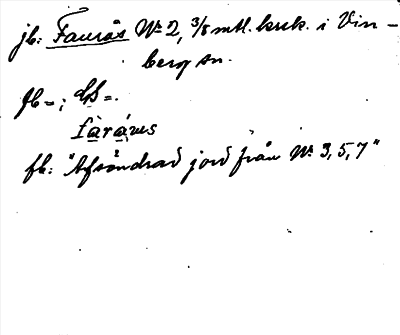 jb: Faurås No 2, 3/8 mtl. krsk. i Vin-
berg sn.
fb = ;
fb: "Afsöndrad jord från No 3, 5, 7"